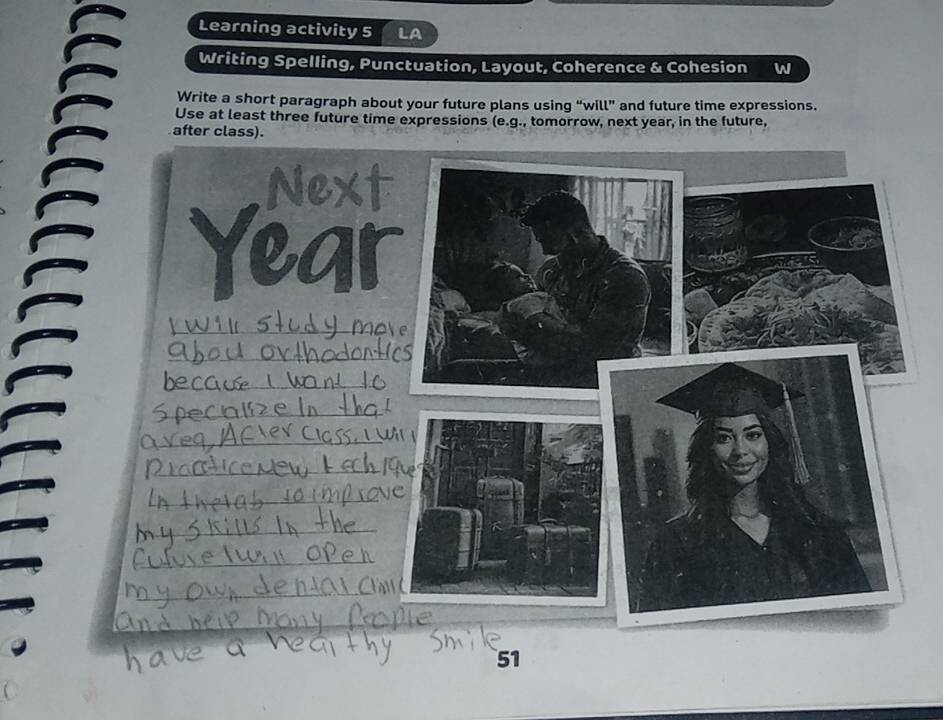 Learning activity 5 LA
Writing Spelling, Punctuation, Layout, Coherence & Cohesion W
Write a short paragraph about your future plans using “will” and future time expressions.
Use at least three future time expressions (e.g., tomorrow, next year, in the future,
after class).
Next
Year
I will study more
abou orthodontics
because I want to
specialize In that
area, After class, I will
Practice New techiques
In the lab to improve
my skills In the
future I will open
my own dental clinic
and help many people
have a healthy smile
51